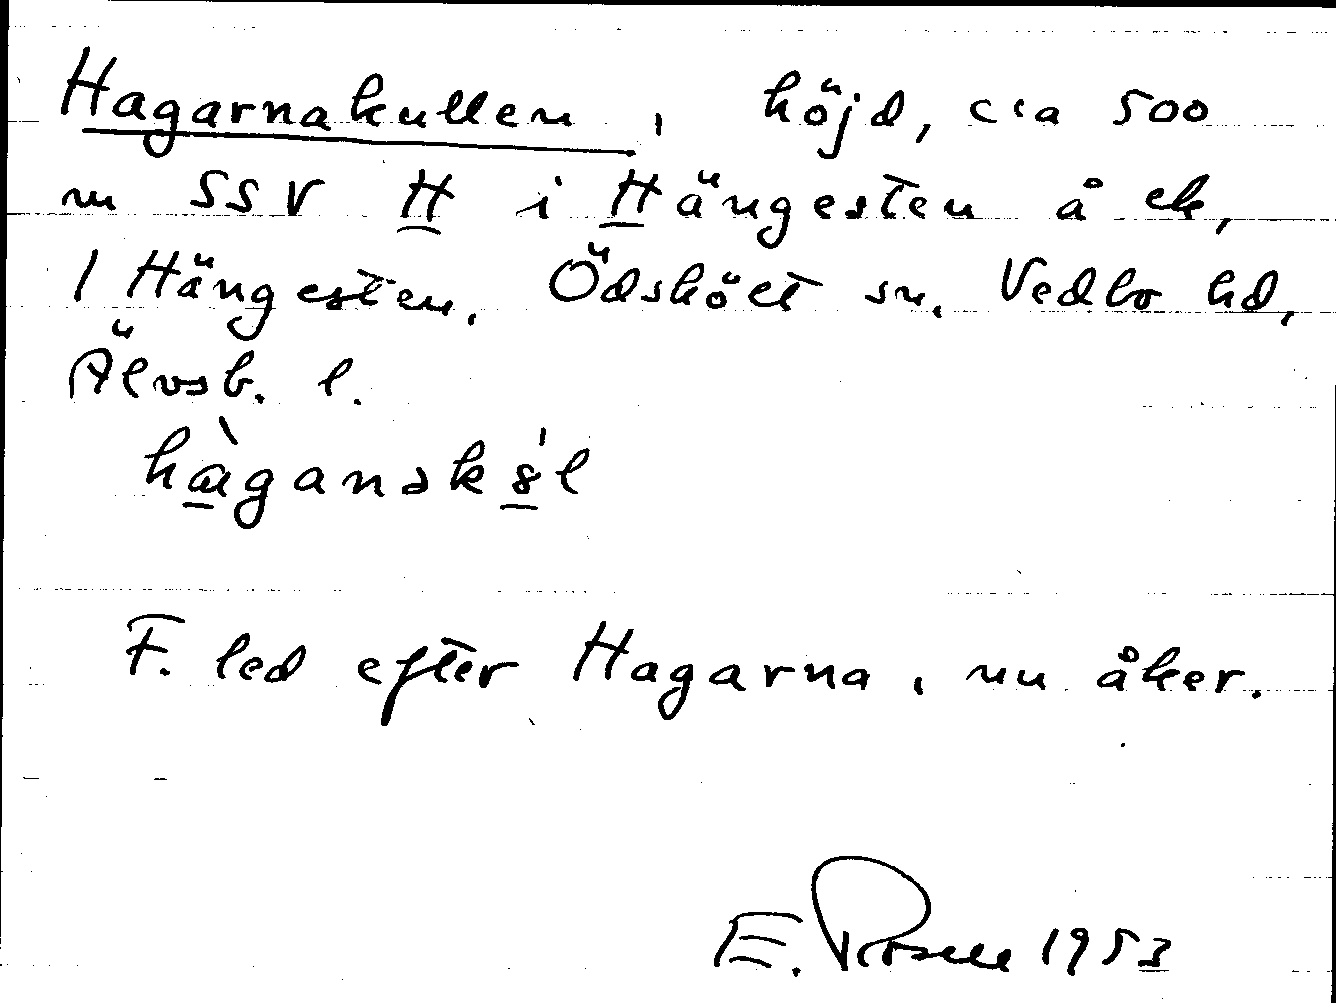 Hagarnakullen, höjd, c:a 500
m SSV H i Hängesten å ek,
/ Hängesten, Ödsköet sn, Vedbo hd,
Älvsb. l.
F. led efter Hagarna, nu åker.
E. Rosell 1953